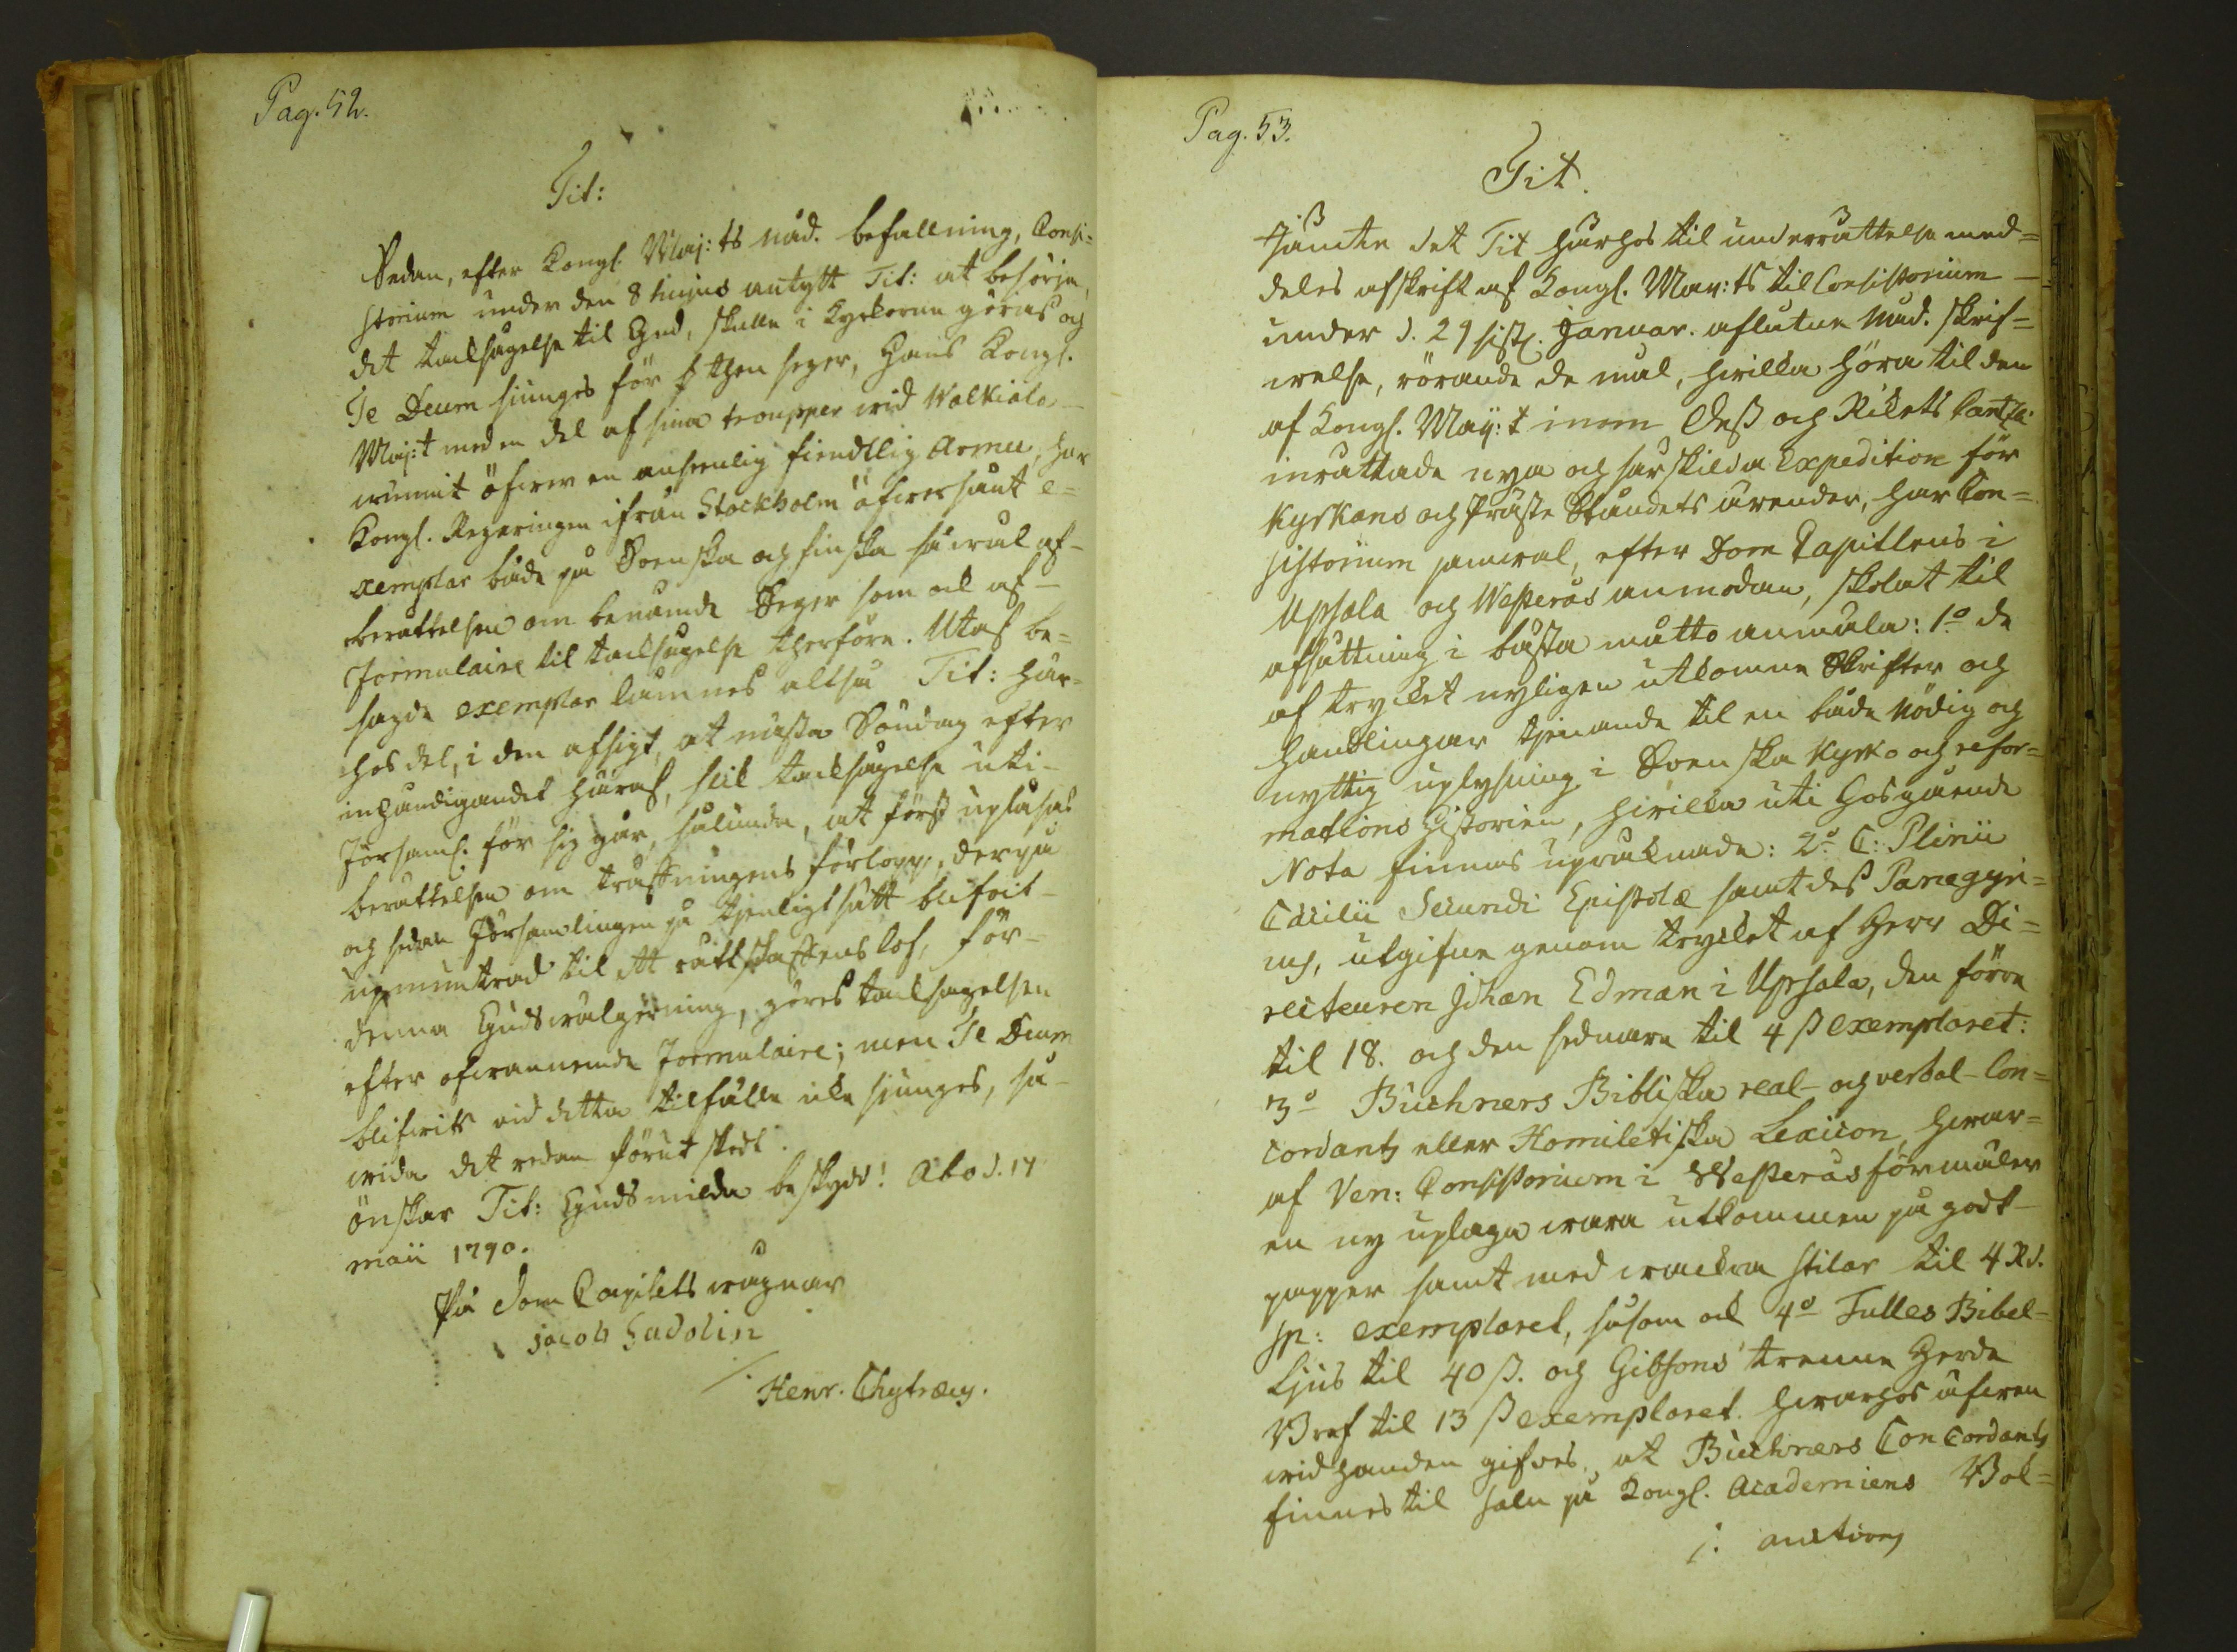 Pag. 52.
Tit:
Sedan, efter Kongl. Maj:ts nåd. befallning, Consi=
storium under den 8 hujus antytt Tit: at besörja,
det tacksägelse til Gud, skulle i Kyrkorne göras och
Te Deum siunges för then seger, Hans Kongl.
Maj:t med en del af sina troupper wid Walkiala
wunnit öfwer en ansenlig fiendtlig Armee, har
Kongl. Regeringen ifrån Stockholm öfwersänt e=
xemplar både på Svenska och finska såwäl af
berättelsen om benämde Seger som ock af
Formulaire til tacksägelse therföre. Utaf be=
sagde exemplar lämnes altså Tit: här=
hos del, i den afsigt, at nästa Söndag efter
inhändigandet häraf, slik tacksägelse uti
Församl. för sig går, sålunda, at först upläses
berättelsen om träffningens förlopp, derpå
och sedan Församlingen på tjenligt sätt blifvit
upmuntrad til ett rättskaffens lof, för
denna Guds wälgerning, göres tacksägelsen
efter ofwannemde Formulaire; men Te Deum
blifwer vid detta tilfälle icke sjunges, så
wida det redan förut skedt.
önskar Tit: Guds milda beskydd! Åbo d. 14
maii 1790.
På Dom Capitlets wägnar
Jacob Gadolin
/. Henr. Chytræus.
Pag. 53.
Tit.
Jämte det Tit härhos til underrättelse med=
deles afskrift af Kongl. May:ts til Consistorium
under d. 29 sistl. Januar. aflåtne Nåd. skrif=
welse, rörande de mål, hwilka höra til den
af Kongl. May:t inom Dess och Rikets Cantzli
inrättade nya och särskilda Expedition för
Kyrkans och Präste Ståndets ärender, har Con=
sistorium jämwäl, efter Dom Capitlens i
Upsala och Westerås anmodan, skolat til
afsättning i bästa måtto anmäla: 1:o de
af trycket nyligen utkomne Skrifter och
Handlingar tjenande til en både nödig och
nyttig uplysning i Svenska Kyrko och refor=
mations Historien, hwilka uti hosgående
Nota finnas upräknade: 2:o C: Plinii
Cæcilii Secundi Epistolæ samt dess Panegyri=
cus, utgifne genom trycket af Herr Di=
recteuren Johan Edman i Upsala, den förre
til 18. och den sednare til 4 ß exemplaret:
3:o Büchners Bibliska real- och verbal-Con=
cordantz eller Homiletiska Lexicon, hwar=
af Ven: Consistorium i Westerås förmäler
en ny uplaga wara utkommen på godt
papper samt med wackra stilar til 4 Rd.
sp: exemplaret, såsom ock 4:o Tulles Bibel=
Ljus til 40 ß. och Gibsons trenne Herda
Bref til 13 ß exemplaret. hwarhos äfwen
wid handen gifves, at Büchners Concordantz
finnes til salu på Kongl. Academiens Bok=
/. auctions